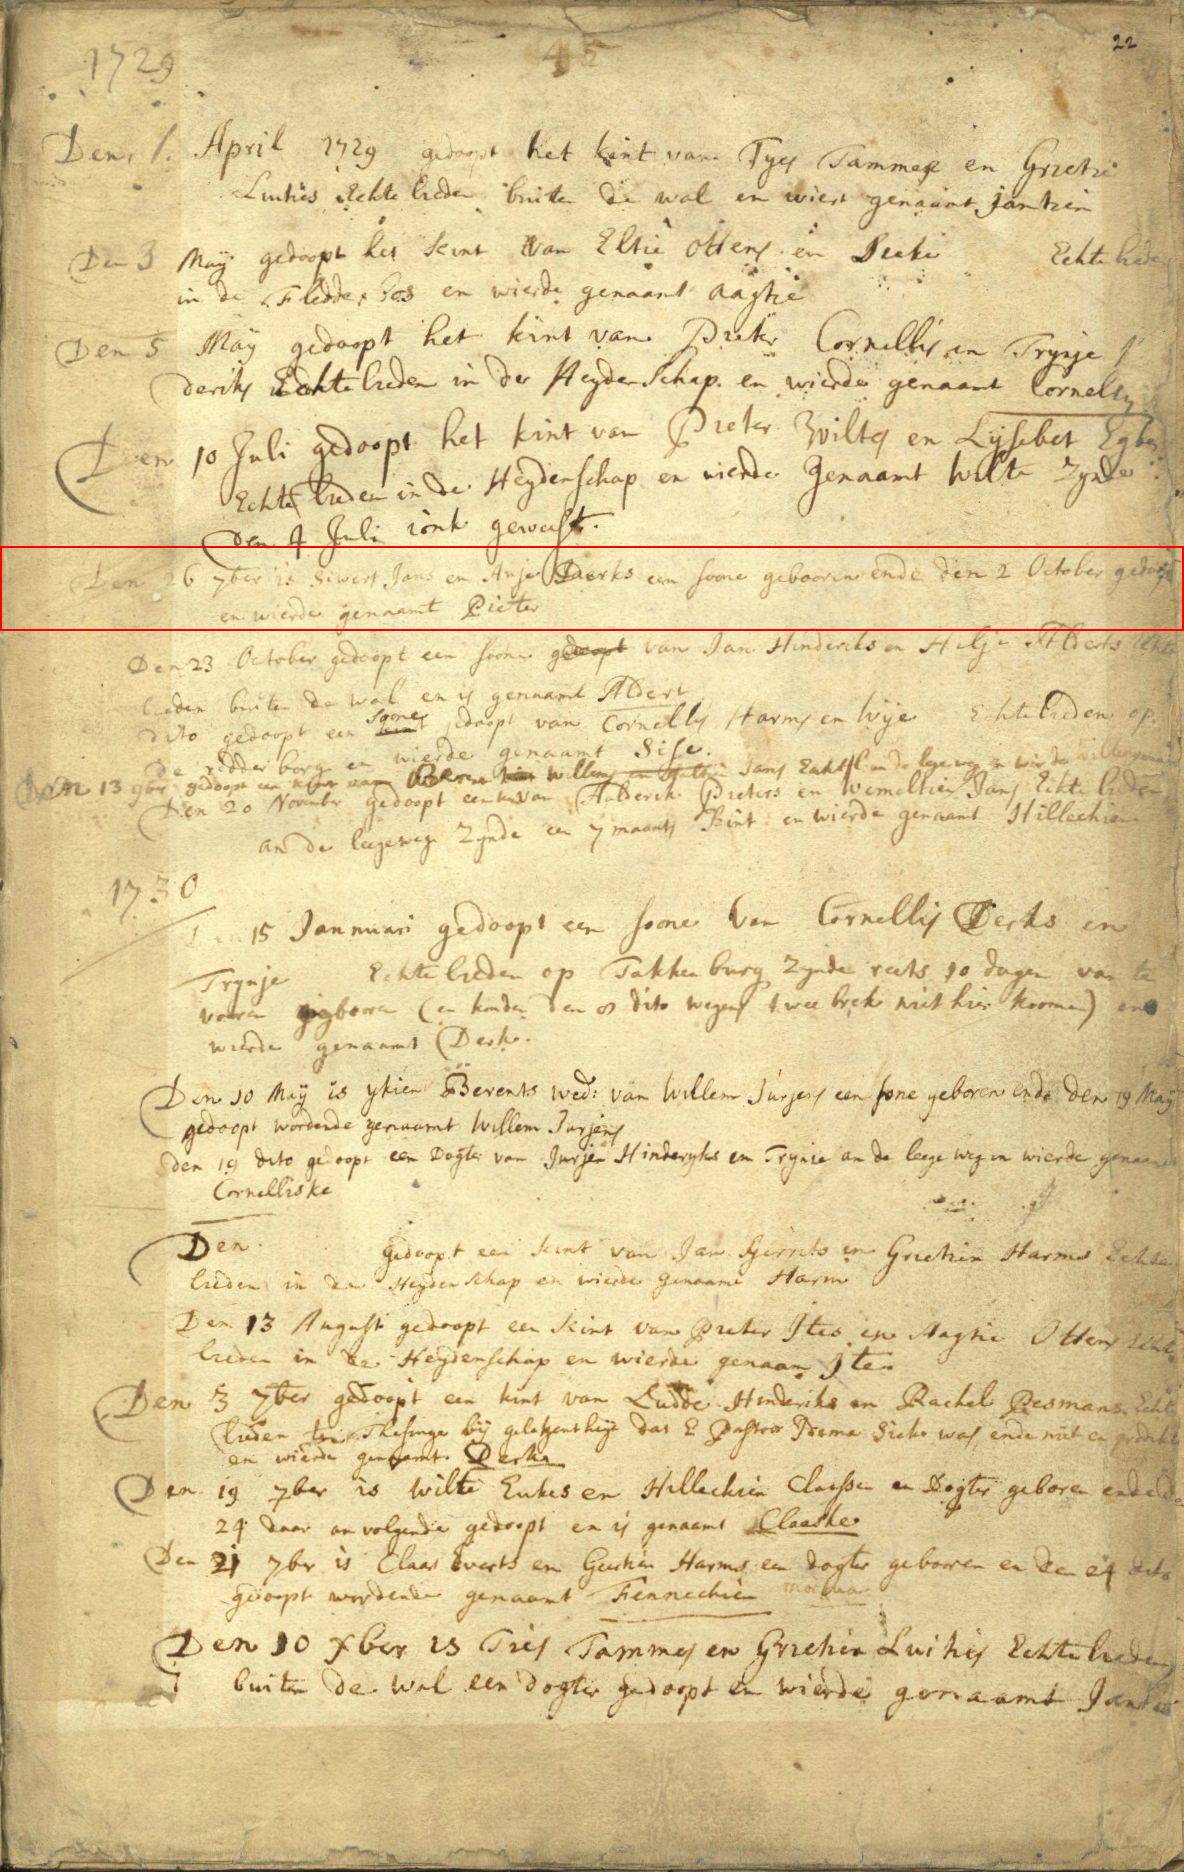 1729
45
22
Den 1. April 1729 gedoopt het kint van Tyes Tammes en Grietie
Luities Echte lieden buiten de wal en wiert genaamt Jantien
Den 3 Maÿ gedoopt het kint van Eltie Ottens en Dieke Echte lieden
in de Fledderbos en wierde genaamt Aagtie
Den 5 Maÿ gedoopt het kint van Pieter Cornellis en Trynje
deriks Echte lieden in der Heydenschap en wierde genaamt Cornelis
Den 10 Juli gedoopt het kint van Pieter Wiltes en Lijsebet Egber
Echte lieden in de Heydenschap en wierde Genaamt Wilte zynde
den 4 Juli jonk geweest.
Den 26 7ber is Siwert Jans en Anje Duerks een soone gebooren ende den 2 October gedoopt
en wierde genaamt Pieter
Den 23 October gedoopt een soone gedoopt van Jan Hinderiks en Hilje Alderts Echte
lieden buiten de wal en is genaamt Aldert
dito gedoopt een soone kint gedoopt van Cornellis Harms en Wije Echtelieden op
de ridderborg en wierde genaamt Sise.
Den 13 9ber gedoopt een van Berent Willems en Jans Echtel an de legeweg en wierde
Den 20 November gedoopt een van Alderik Pieters en Wemeltien Jans Echte lieden
an de leegeweg zynde een 7 maants kint en wierde genaamt Hillechien
1730
Den 15 Jannuari gedoopt een soone van Cornellis Derks en
Trynje Echte lieden op Takkenburg zynde reets 10 dagen van te
vooren gebooren (en konden den 8 dito wegens t wee brek niet hier koomen) en
wierde genaamt Derk.
Den 10 Maÿ is ytien Berents wed: van Willem Jurjens een sone geboren ende den 19 Maÿ
gedoopt wordende genaamt Willem Jurjens
den 19 dito gedoopt een Dogter van Jurjen Hinderyks en Trynje an de leege weg en wierde genaamt
Cornelliske
Den gedoopt een kint van Jan Gerrits en Grietien Harms Echte
lieden in der Heydenschap en wierde genaamt Harm
Den 13 Augusti gedoopt een kint van Pieter Ites en Aagtie Ottens Echte
lieden in de Heydenschap en wierde genaam Iten
Den 3 7ber gedoopt een kint van Ludde Hinderiks en Rachel Pesmans Echte
lieden Thesinge bij gelegentheijt dat E Pastor siek was, ende niet en
en wierde genaamt Derk
Den 19 7ber is Wilte Eukes en Hillechien Claessen een Dogter geboren ende de
24 daar an volgende gedoopt en is genaamt Claaske
Den 21 7ber is Claas Everts en Geertien Harms een dogter gebooren en den 24 dito
gedoopt wordende genaamt Fennechien
Den 10 Xber is Ties Tammes en Grietien Luities Echte lieden
buiten de wal een dogter gedoopt en wierde genaamt Jantie